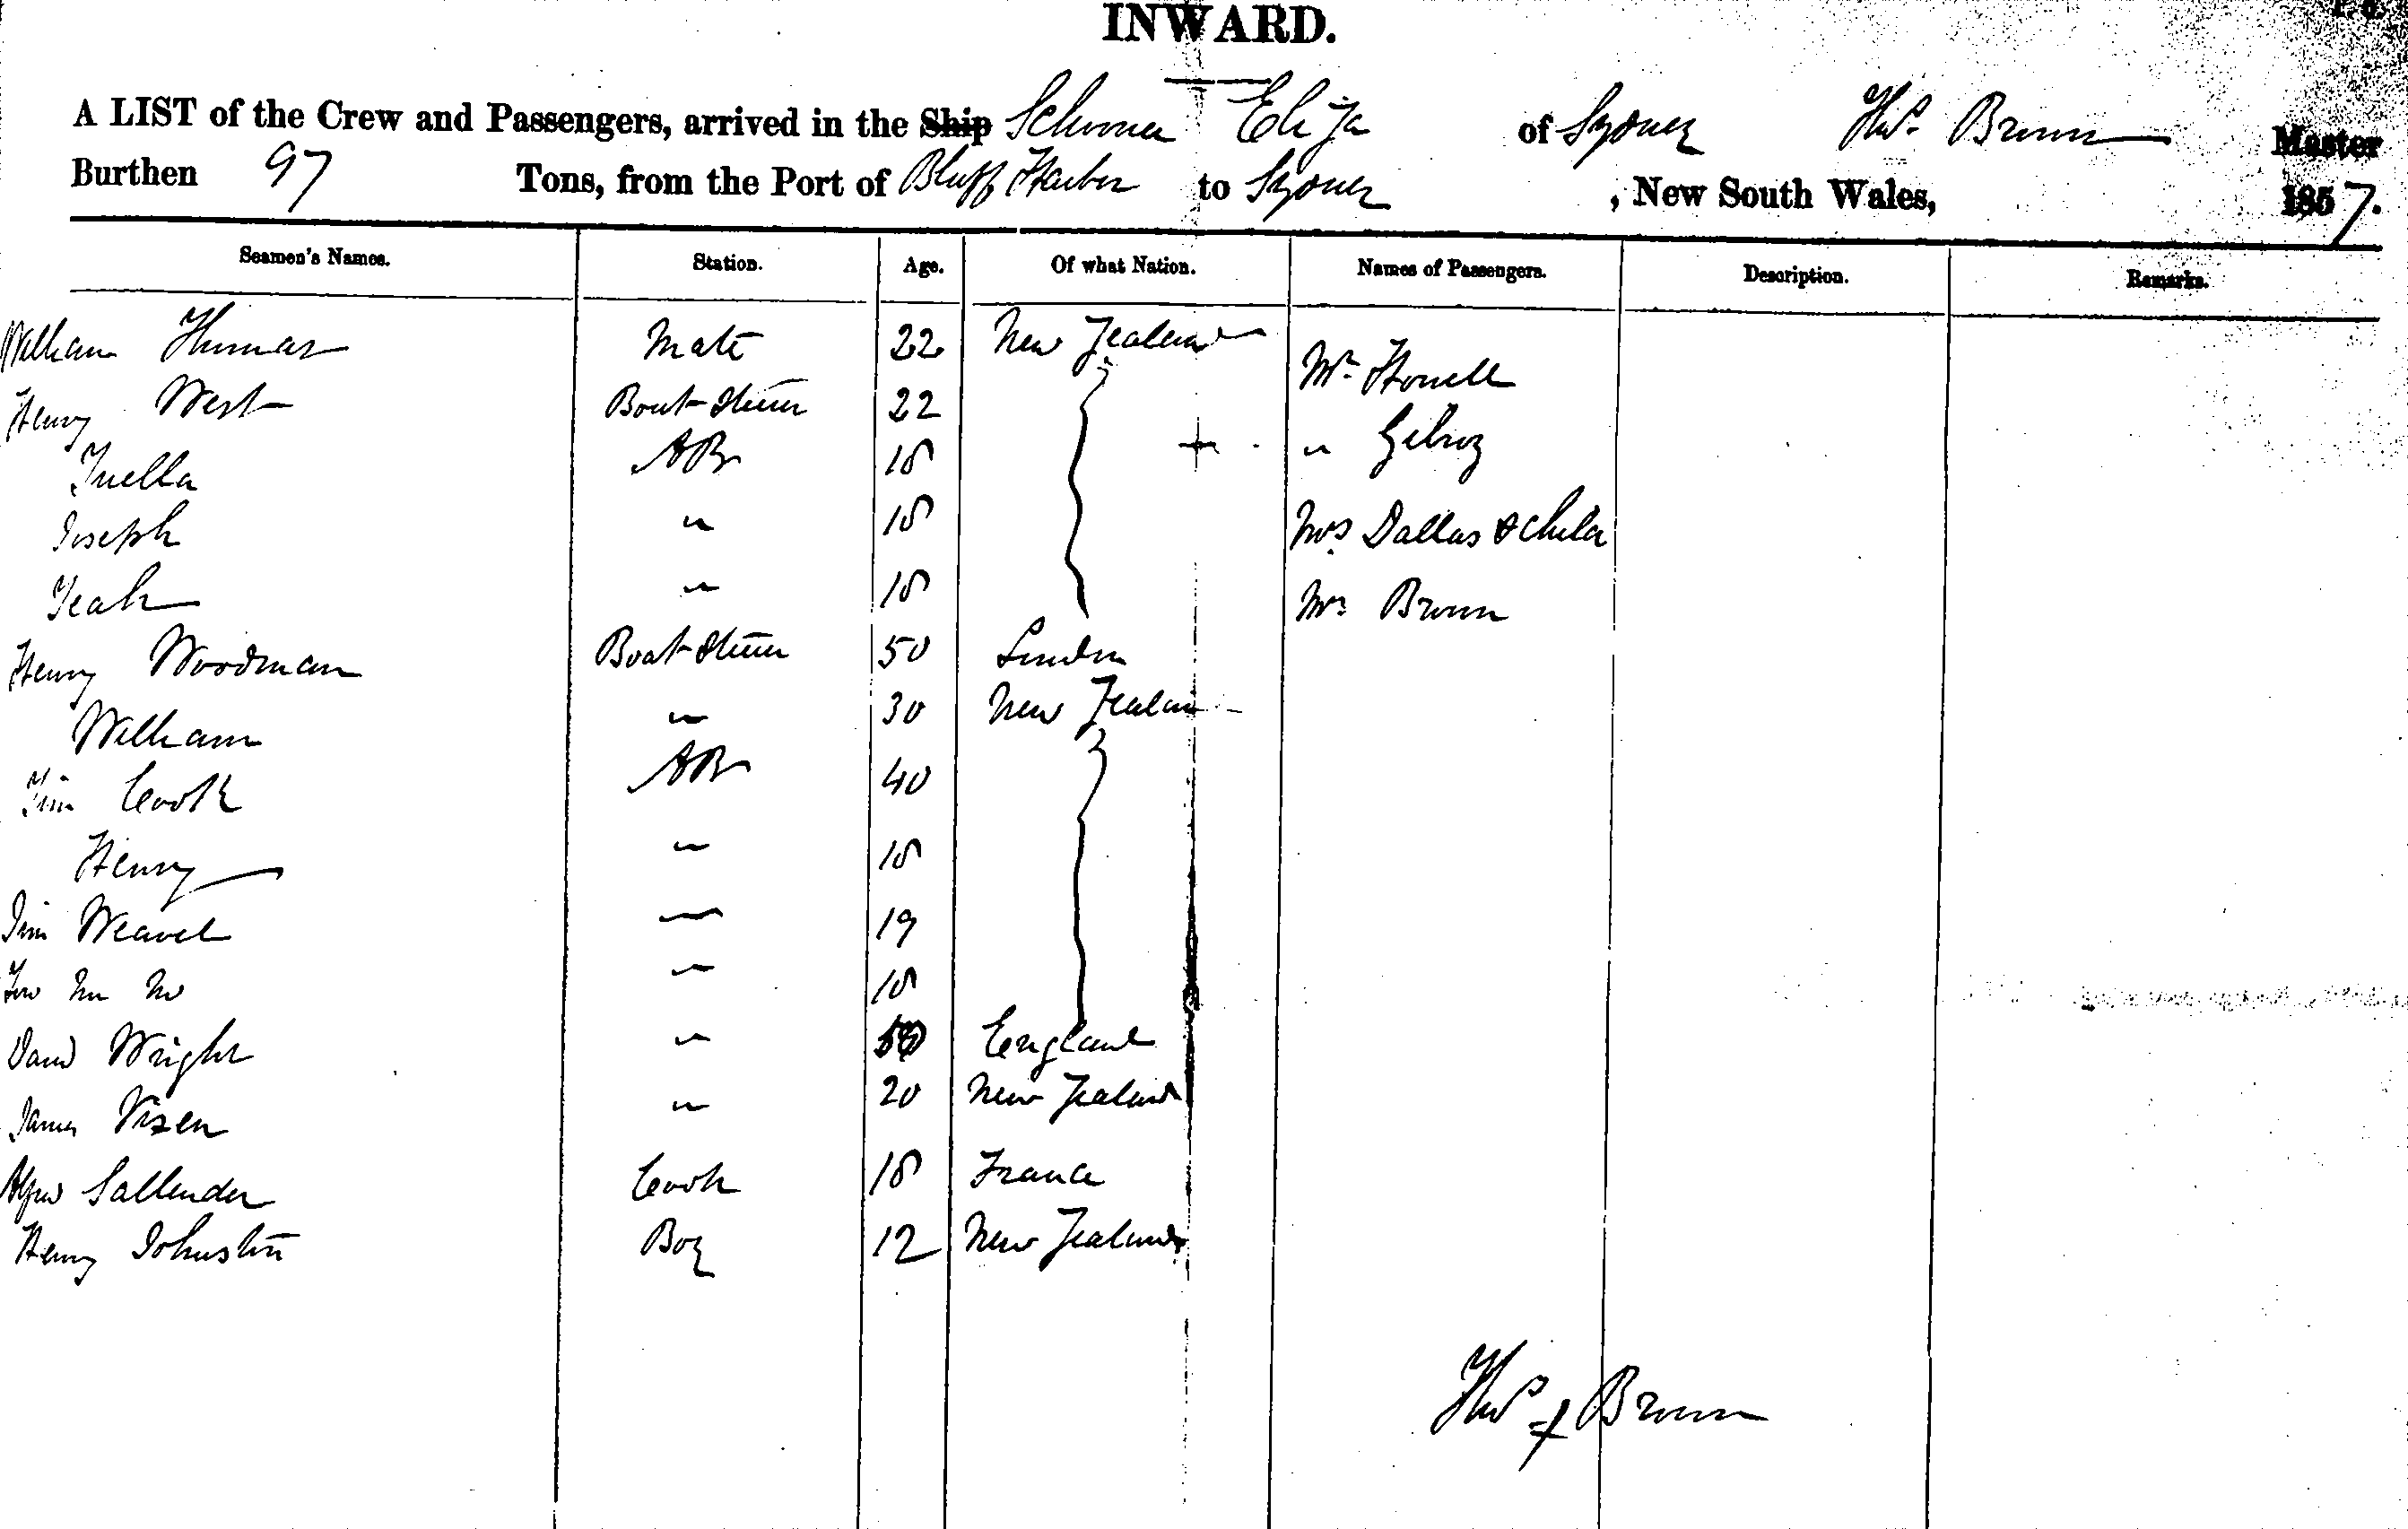 INWARD.
A LIST of the Crew and Passengers, arrived in the Ship Schooner Eliza of Sydney Thos. Brown Master
Burthen 97 Tons, from the Port of Bluff Harbor to Sydney, New South Wales, 1857.
Seamen's Names. Station. Age. Of what Nation. Names of Passengers. Description. Remarks.
William Thomas Mate 22 New Zealand Mr. Howell
Henry West Boat Steerer 22 " Gilroy
AB 18
Joseph " 18 Mrs Dallas & Child
" 18 Mrs Brown
Henry Woodman Boat Steerer 50 London
William " 30 New Zealand
Jim Cook AB 40
Henry " 18
Jim " 19
" 18
David Wright " England
James " 20 New Zealand
Alfred Sallender Cook 18 France
Henry Johnston Boy 12 New Zealand
Thos Brown